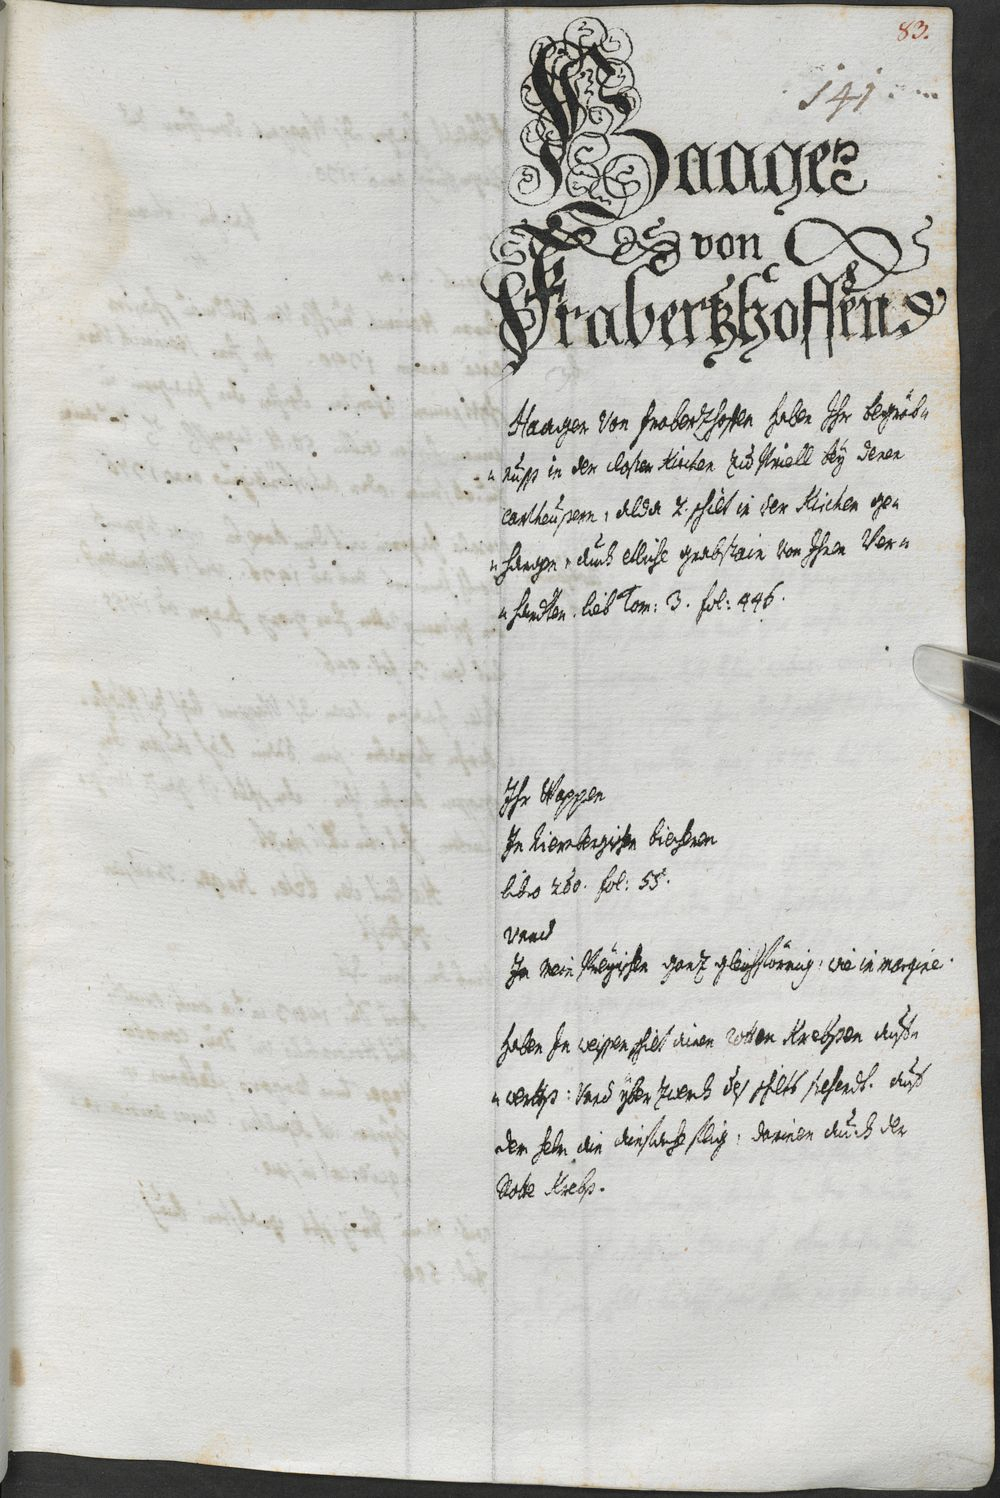 83.
141.
Haager
von
Frabertzhoffen
Haager von Frabertzhoffen haben Ihr begräb-
nuss in der closter Kirchen zu Priell bey denen
cartheusern, alda 2. schilt in der Kirchen ge-
hangen, auch etliche grabstain von Ihnen Ver-
handten. lieb Tom: 3. fol: 446.
Ihr Wappen
In
libro 260. fol: 55.
vnnd
In mein ganz gleichförmig: wie in margine.
haben In weissen schilt ainen rotten Krebsen auf-
werths: vnnd yber zwerch des schilts stehendt. auf
dem helm ein: darinen auch der
Rotte Krebs.